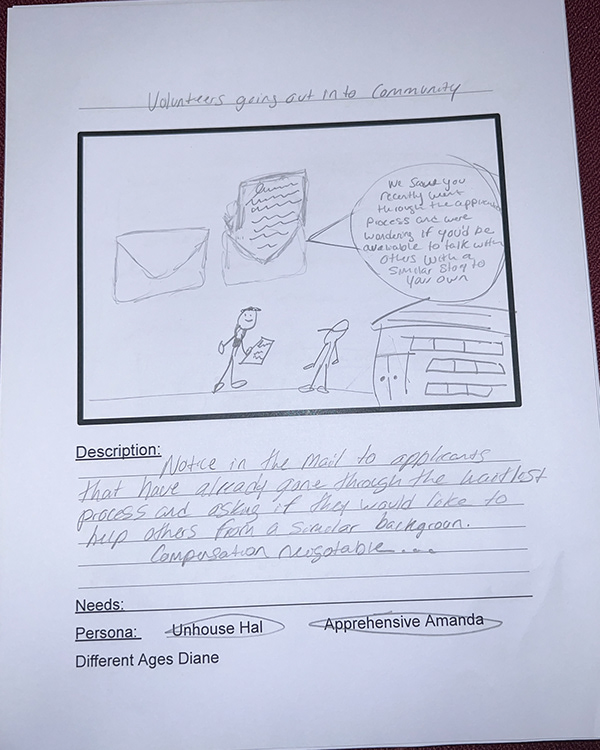 Volunteers going out into Community
We saw you
recently went
through the applicant
process and were
wondering if you'd be
available to talk with
others with a
similar story to
your own
Description:
Notice in the mail to applicants
that have already gone through the waitlist
process and asking if they would like to
help others from a similar backgroun.
Compensation negotable....
Needs:
Persona: Unhouse Hal Apprehensive Amanda
Different Ages Diane